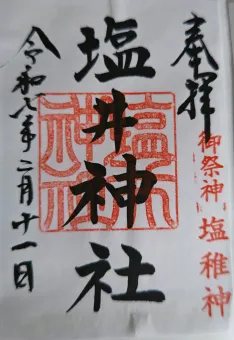 奉拝
御祭神 塩稚神
塩井神社
塩井神社
令和八年二月十一日